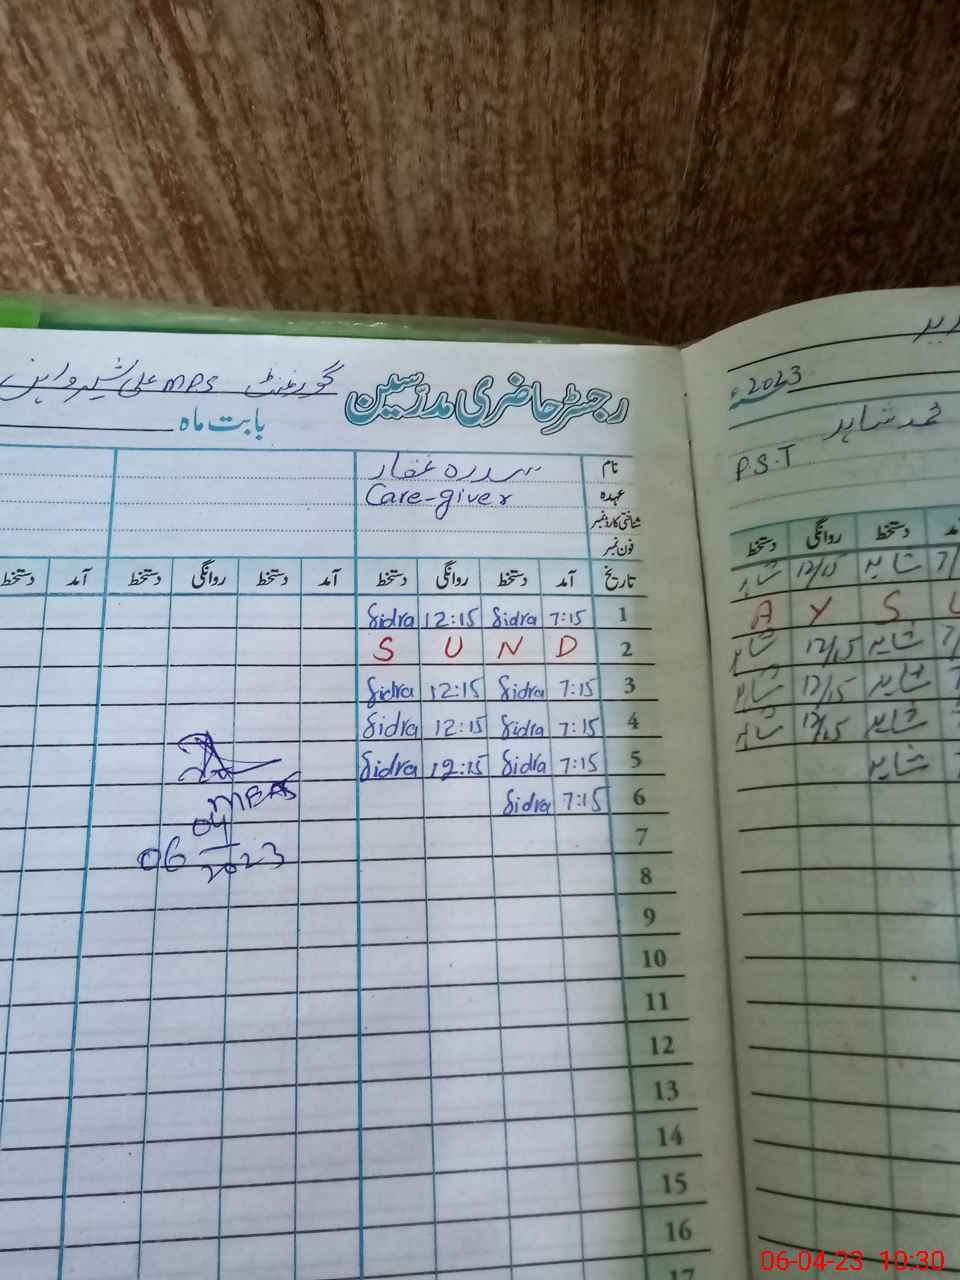 رجسٹر حاضری مدرسین گورنمنٹ MPS علی شیر واہن
بابت ماہ
2023
نام سدرہ غفار
عہدہ Care-giver
شناختی کارڈ نمبر
فون نمبر
محمد شاہد
P.S.T
تاریخ آمد دستخط روانگی دستخط آمد دستخط روانگی دستخط آمد دستخط
دستخط روانگی دستخط
1 7:15 Sidra 12:15 Sidra
2 D N U S
3 7:15 Sidra 12:15 Sidra
4 7:15 Sidra 12:15 Sidra
5 7:15 Sidra 12:15 Sidra
6 7:15 Sidra
7
8
9
10
11
12
13
14
15
16
17
شاہد 12/15 شاہد
S Y A
شاہد 12/15 شاہد
شاہد 12/15 شاہد
شاہد 12/15 شاہد
شاہد
06 04 2023
06-04-23 10:30